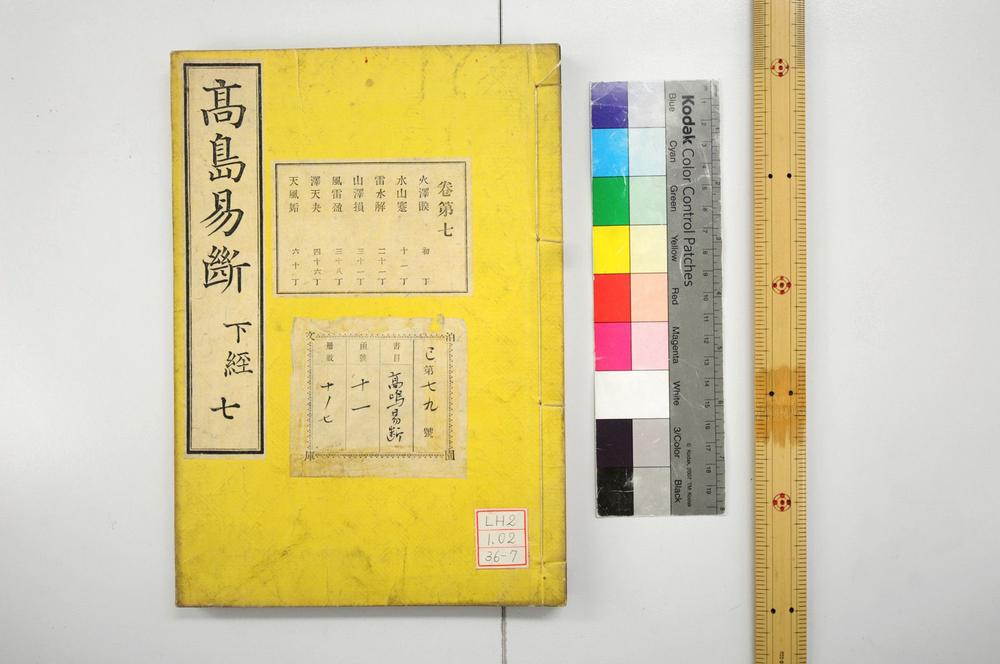 高島易斷
下經
七
卷第七
火澤睽 初丁
水山蹇 十一丁
雷水解 二十一丁
山澤損 三十一丁
風雷益 三十八丁
澤天夬 四十六丁
天風姤 六十丁
泊園文庫
己第七九號
書目 高嶋易断
函號 十一
冊數 十ノ七
LH2
1.02
36-7
Kodak Color Control Patches
© Kodak, 2007 TM: Kodak
Blue
Cyan
Green
Yellow
Red
Magenta
White
3/Color
Black